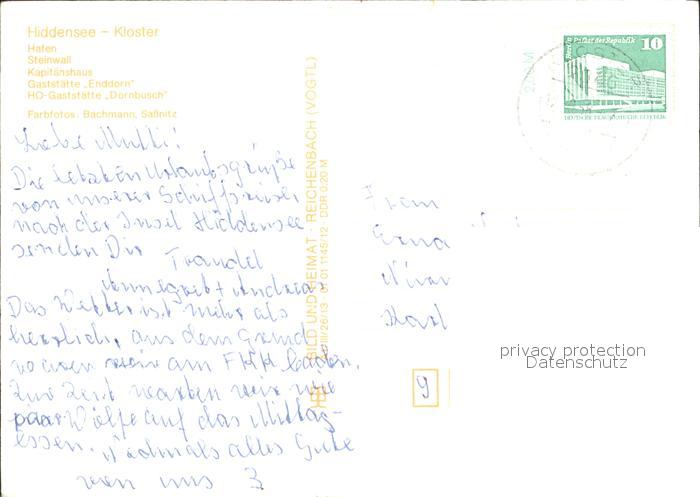 Hiddensee – Kloster
Hafen
Steinwall
Kapitänshaus
Gaststätte „Enddorn"
HO-Gaststätte „Dornbusch"
Farbfotos: Bachmann, Saßnitz
Liebe Mutti!
Die letzten Urlaubsgrüße
von unserer Schiffsreise
nach der Insel Hiddensee
senden Dir Traudel
Annegret + Andreas
Das Wetter ist mehr als
herrlich, aus dem Grund
waren wir am FKK baden.
Zur Zeit warten wir wie
paar Wölfe auf das Mittag-
essen. Nochmals alles Gute
von uns 3
BILD UND HEIMAT · REICHENBACH (VOGTL)
01 01 1145/12 DDR 0,20 M
Berlin Palast der Republik
10
DEUTSCHE DEMOKRATISCHE REPUBLIK
Frau
Erna
9
privacy protection
Datenschutz